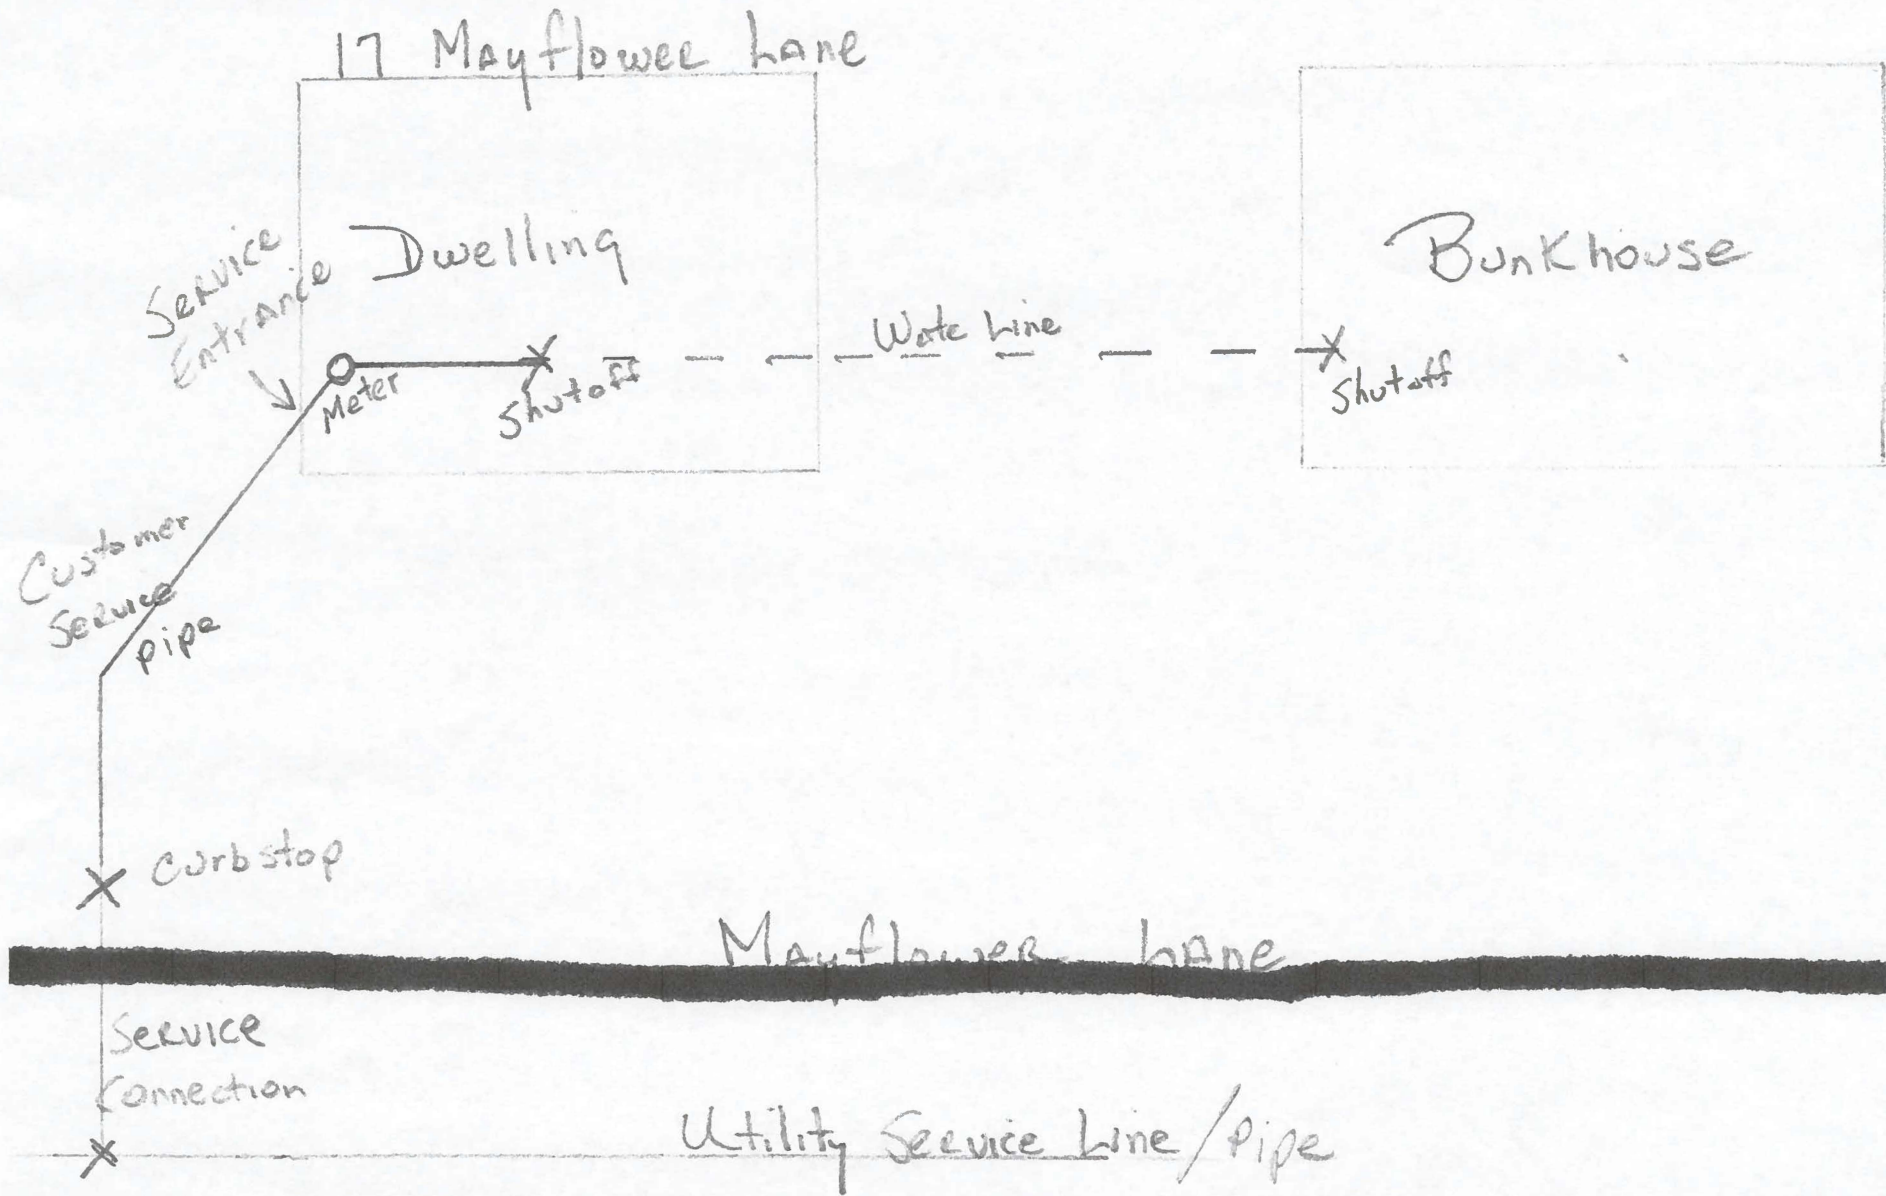 17 Mayflower Lane
Service
Entrance
Dwelling
Bunkhouse
Wate Line
Meter
Shutoff
Shutoff
Customer
Service
Pipe
Curbstop
Mayflower Lane
Service
Connection
Utility Service Line/Pipe